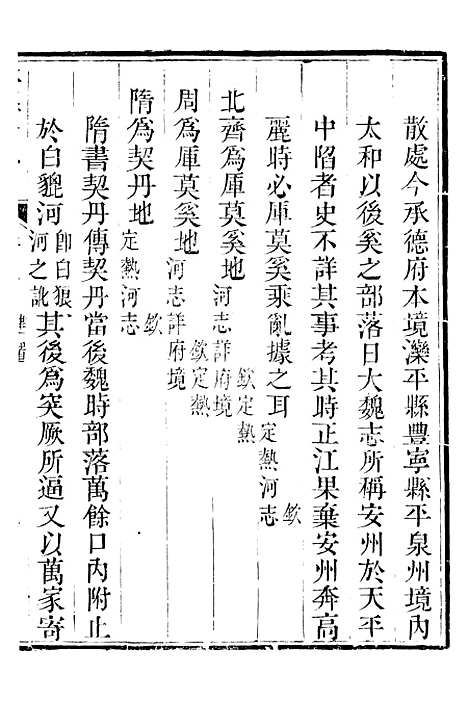 散處今承德府本境灤平縣豐寧縣平泉州境內
太和以後奚之部落日大魏志所稱安州於天平
中陷者史不詳其事考其時正江果棄安州奔高
麗時必庫莫奚乘亂據之耳欽定熱河志
北齊爲庫莫奚地欽定熱河志詳府境
周爲庫莫奚地欽定熱河志詳府境
隋爲契丹地欽定熱河志
隋書契丹傳契丹當後魏時部落萬餘口內附止
於白貔河卽白狼河之訛其後爲突厥所逼又以萬家寄